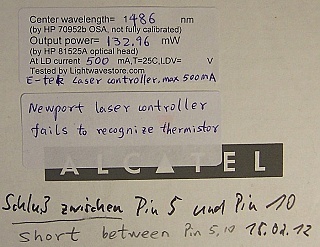 Center wavelength= 1486 nm
(by HP 70952b OSA, not fully calibrated)
Output power= 132.96 mW
(by HP 81525A optical head)
At LD current 500 mA,T=25C,LDV= V
Tested by Lightwavestore.com
E-tek Laser controller, max 500mA
Newport laser controller
fails to recognize thermistor
ALCATEL
Schluß zwischen Pin 5 und Pin 10
short between Pin 5,10 15.02.12